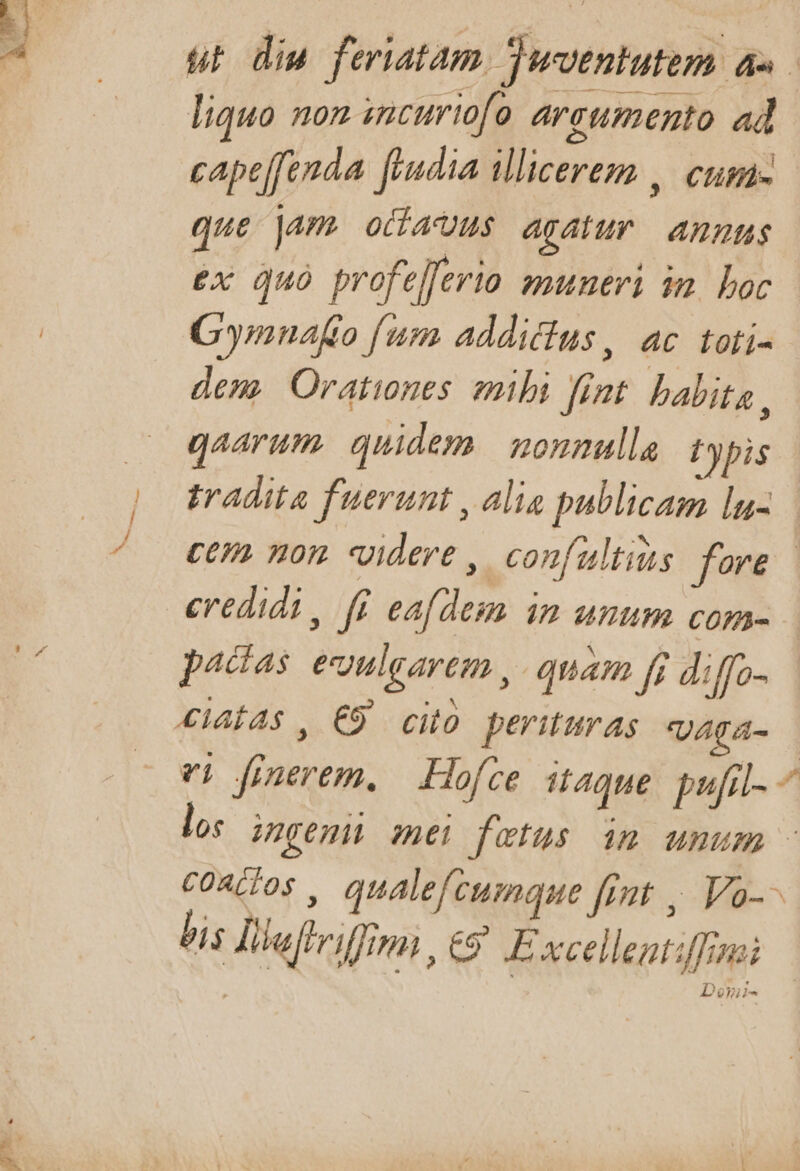 ut diu feriatam Juventutem a-
liquo non incurioſo argumento ad
capeſſenda ſtudia illicerem , cum-
que jam octavus agatur annus
ex quò profeſſorio muneri in hoc
Gymnaſio ſum addictus, ac toti-
dem Orationes mihi ſint habitæ,
qaarum quidem nonnullæ typis
traditæ fuerunt , aliæ publicam lu-
cem non videre , conſultiùs fore
credidi , ſi eaſdem in unum com-
pactas evulgarem , quàm ſi diſſo-
ciatas , & citò perituras vaga-
ri ſinerem. Hoſce itaque puſil-
los ingenii mei fœtus in unum
coactos , qualeſcumque ſint , Vo-
bis Illuſtriſſimi, & Excellentiſſimi
Domi-